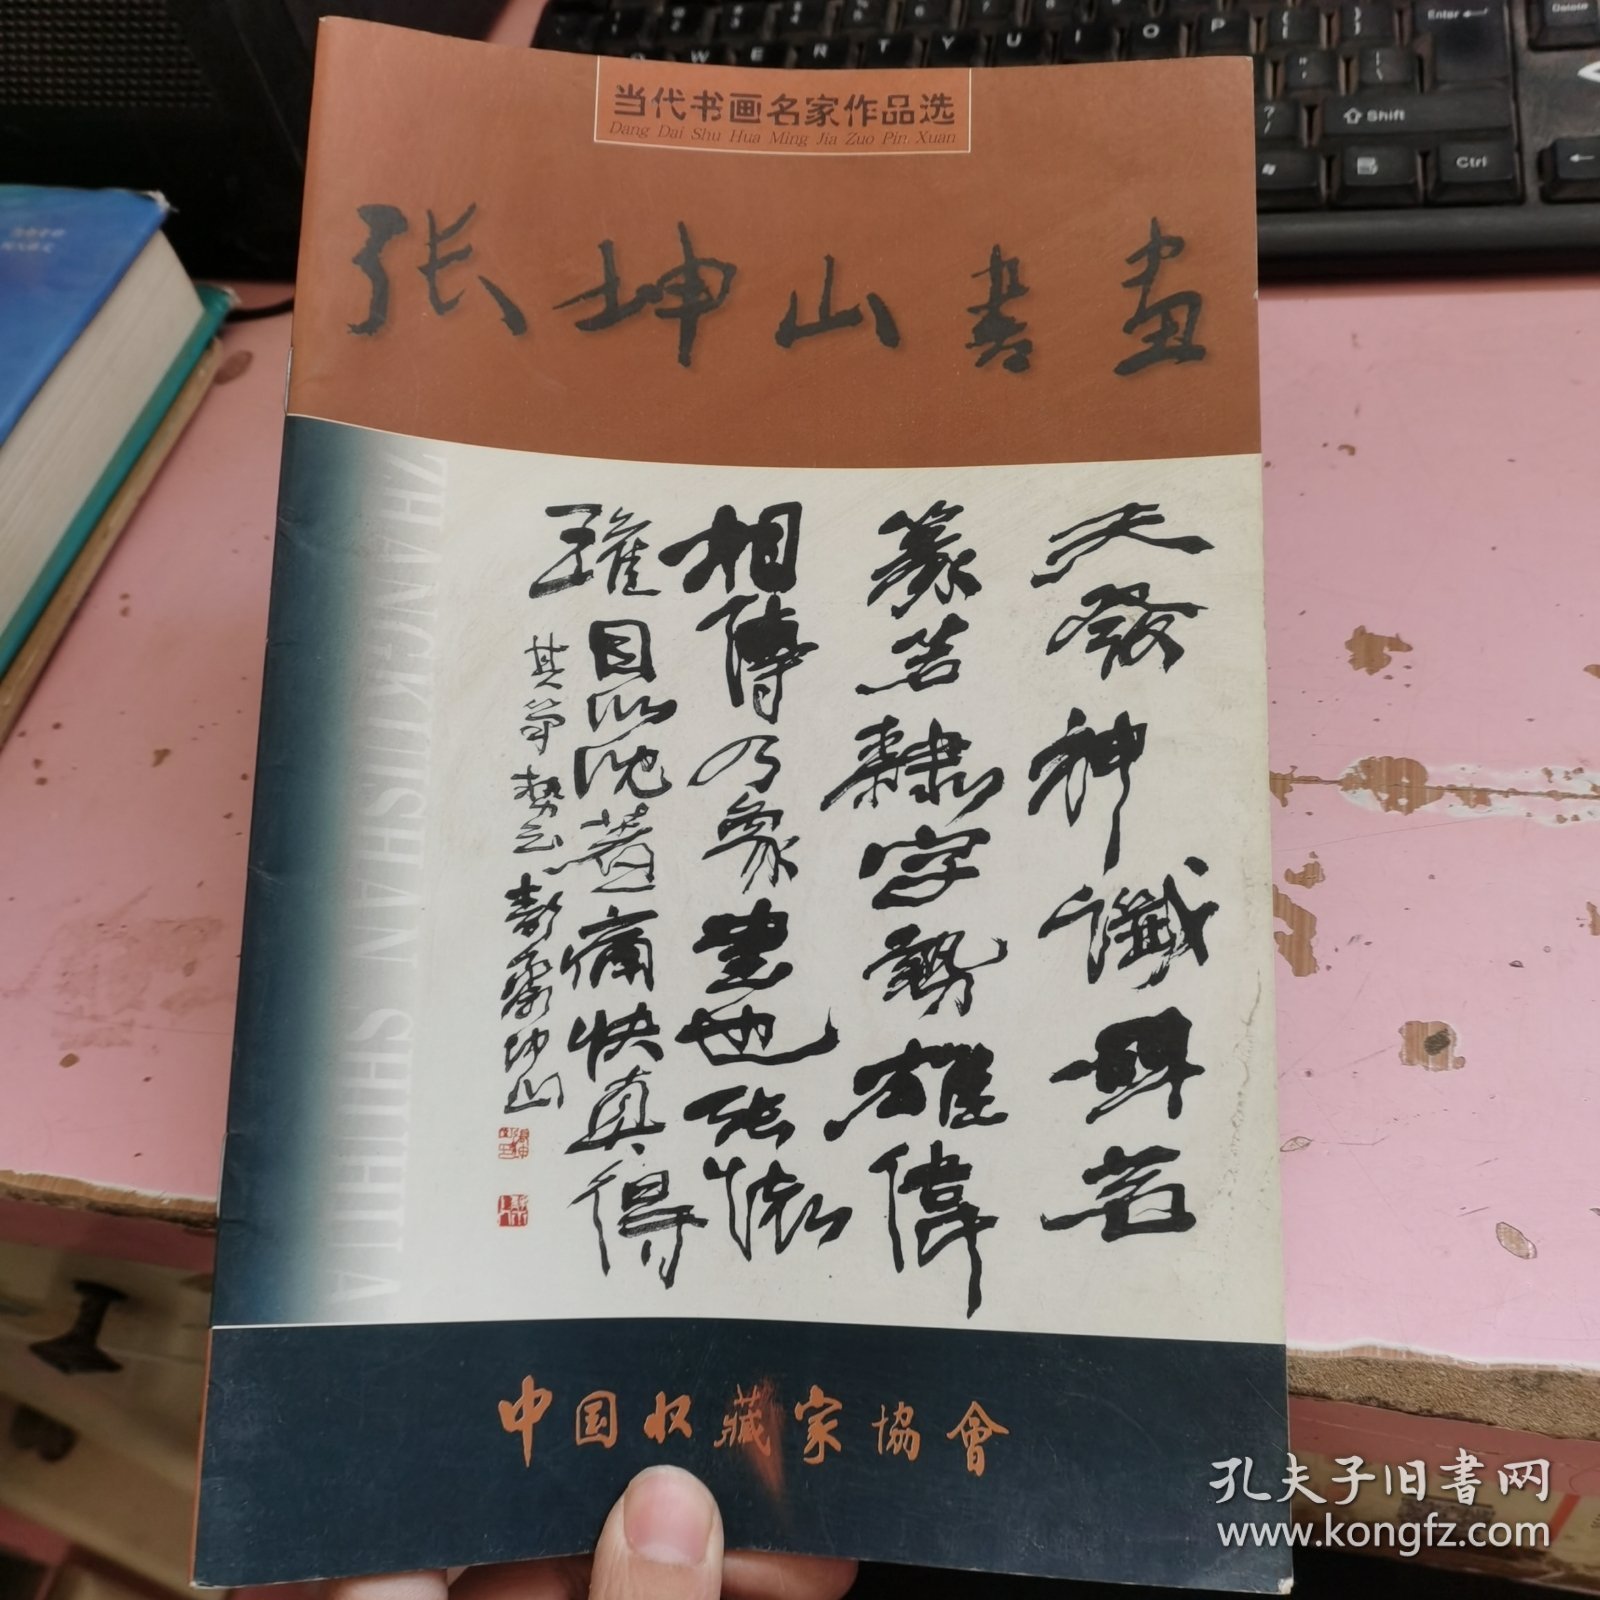 当代书画名家作品选
Dang Dai Shu Hua Ming Jia Zuo Pin Xuan
张坤山書畫
ZHANGKUNSHAN SHUHUA
天發神讖碑若
篆若隸字勢雄偉
相傳乃象書也張懷
瓘目以沈著痛快真得
其筆勢云 坤山
中国収藏家協會
孔夫子旧書网
www.kongfz.com
W E R T Y U I O P
Enter
Delete
Shift
Ctrl